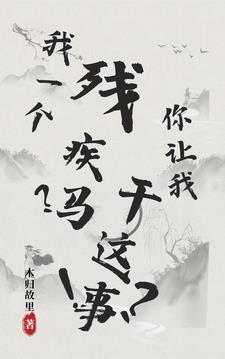 我一个
残疾吗
你让我
干这事!?
木归故里
著